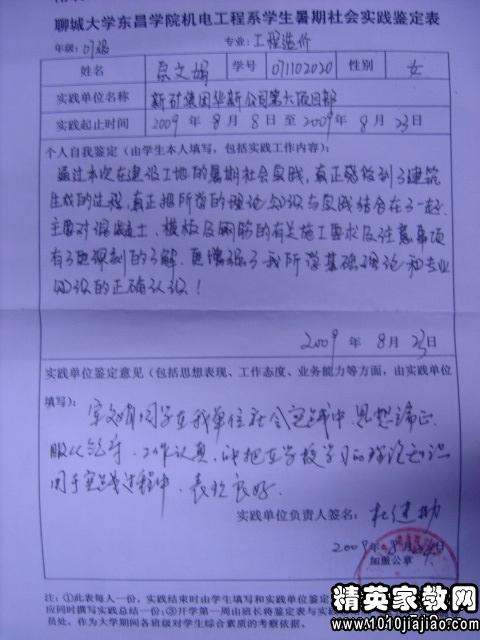 聊城大学东昌学院机电工程系学生暑期社会实践鉴定表
年级: 07级 专业: 工程造价
姓名 学号 071102020 性别 女
实践单位名称 新矿集团华新公司第六项目部
实践起止时间 2009 年 8 月 8 日 至 2009 年 8 月 23 日
个人自我鉴定（由学生本人填写，包括实践工作内容）：
通过本次在建设工地的暑期社会实践，真正感受到了建筑
生成的过程，真正把所学的理论知识与实践结合在了一起，
主要对混凝土、模板及钢筋的有关施工要求及注意事项
有了更深刻的了解，更增强了我所学基础理论和专业
知识的正确认识！
2009 年 8 月 23 日
实践单位鉴定意见（包括思想表现、工作态度、业务能力等方面，由实践单位
填写）：
同学在我单位社会实践中，思想端正，
服从领导，工作认真，能把在学校学习的理论知识
用于实践过程中，表现良好。
实践单位负责人签名：
2009 年 8 月 日
加盖公章
注：①此表每人一份，实践结束时由学生填写和实践单位鉴定
应同时撰写实践总结一份；③开学第一周由班长将鉴定表与实践
员处，作为大学期间各班级对学生综合素质的考察依据。
精英家教网
www.1010jiajiao.com